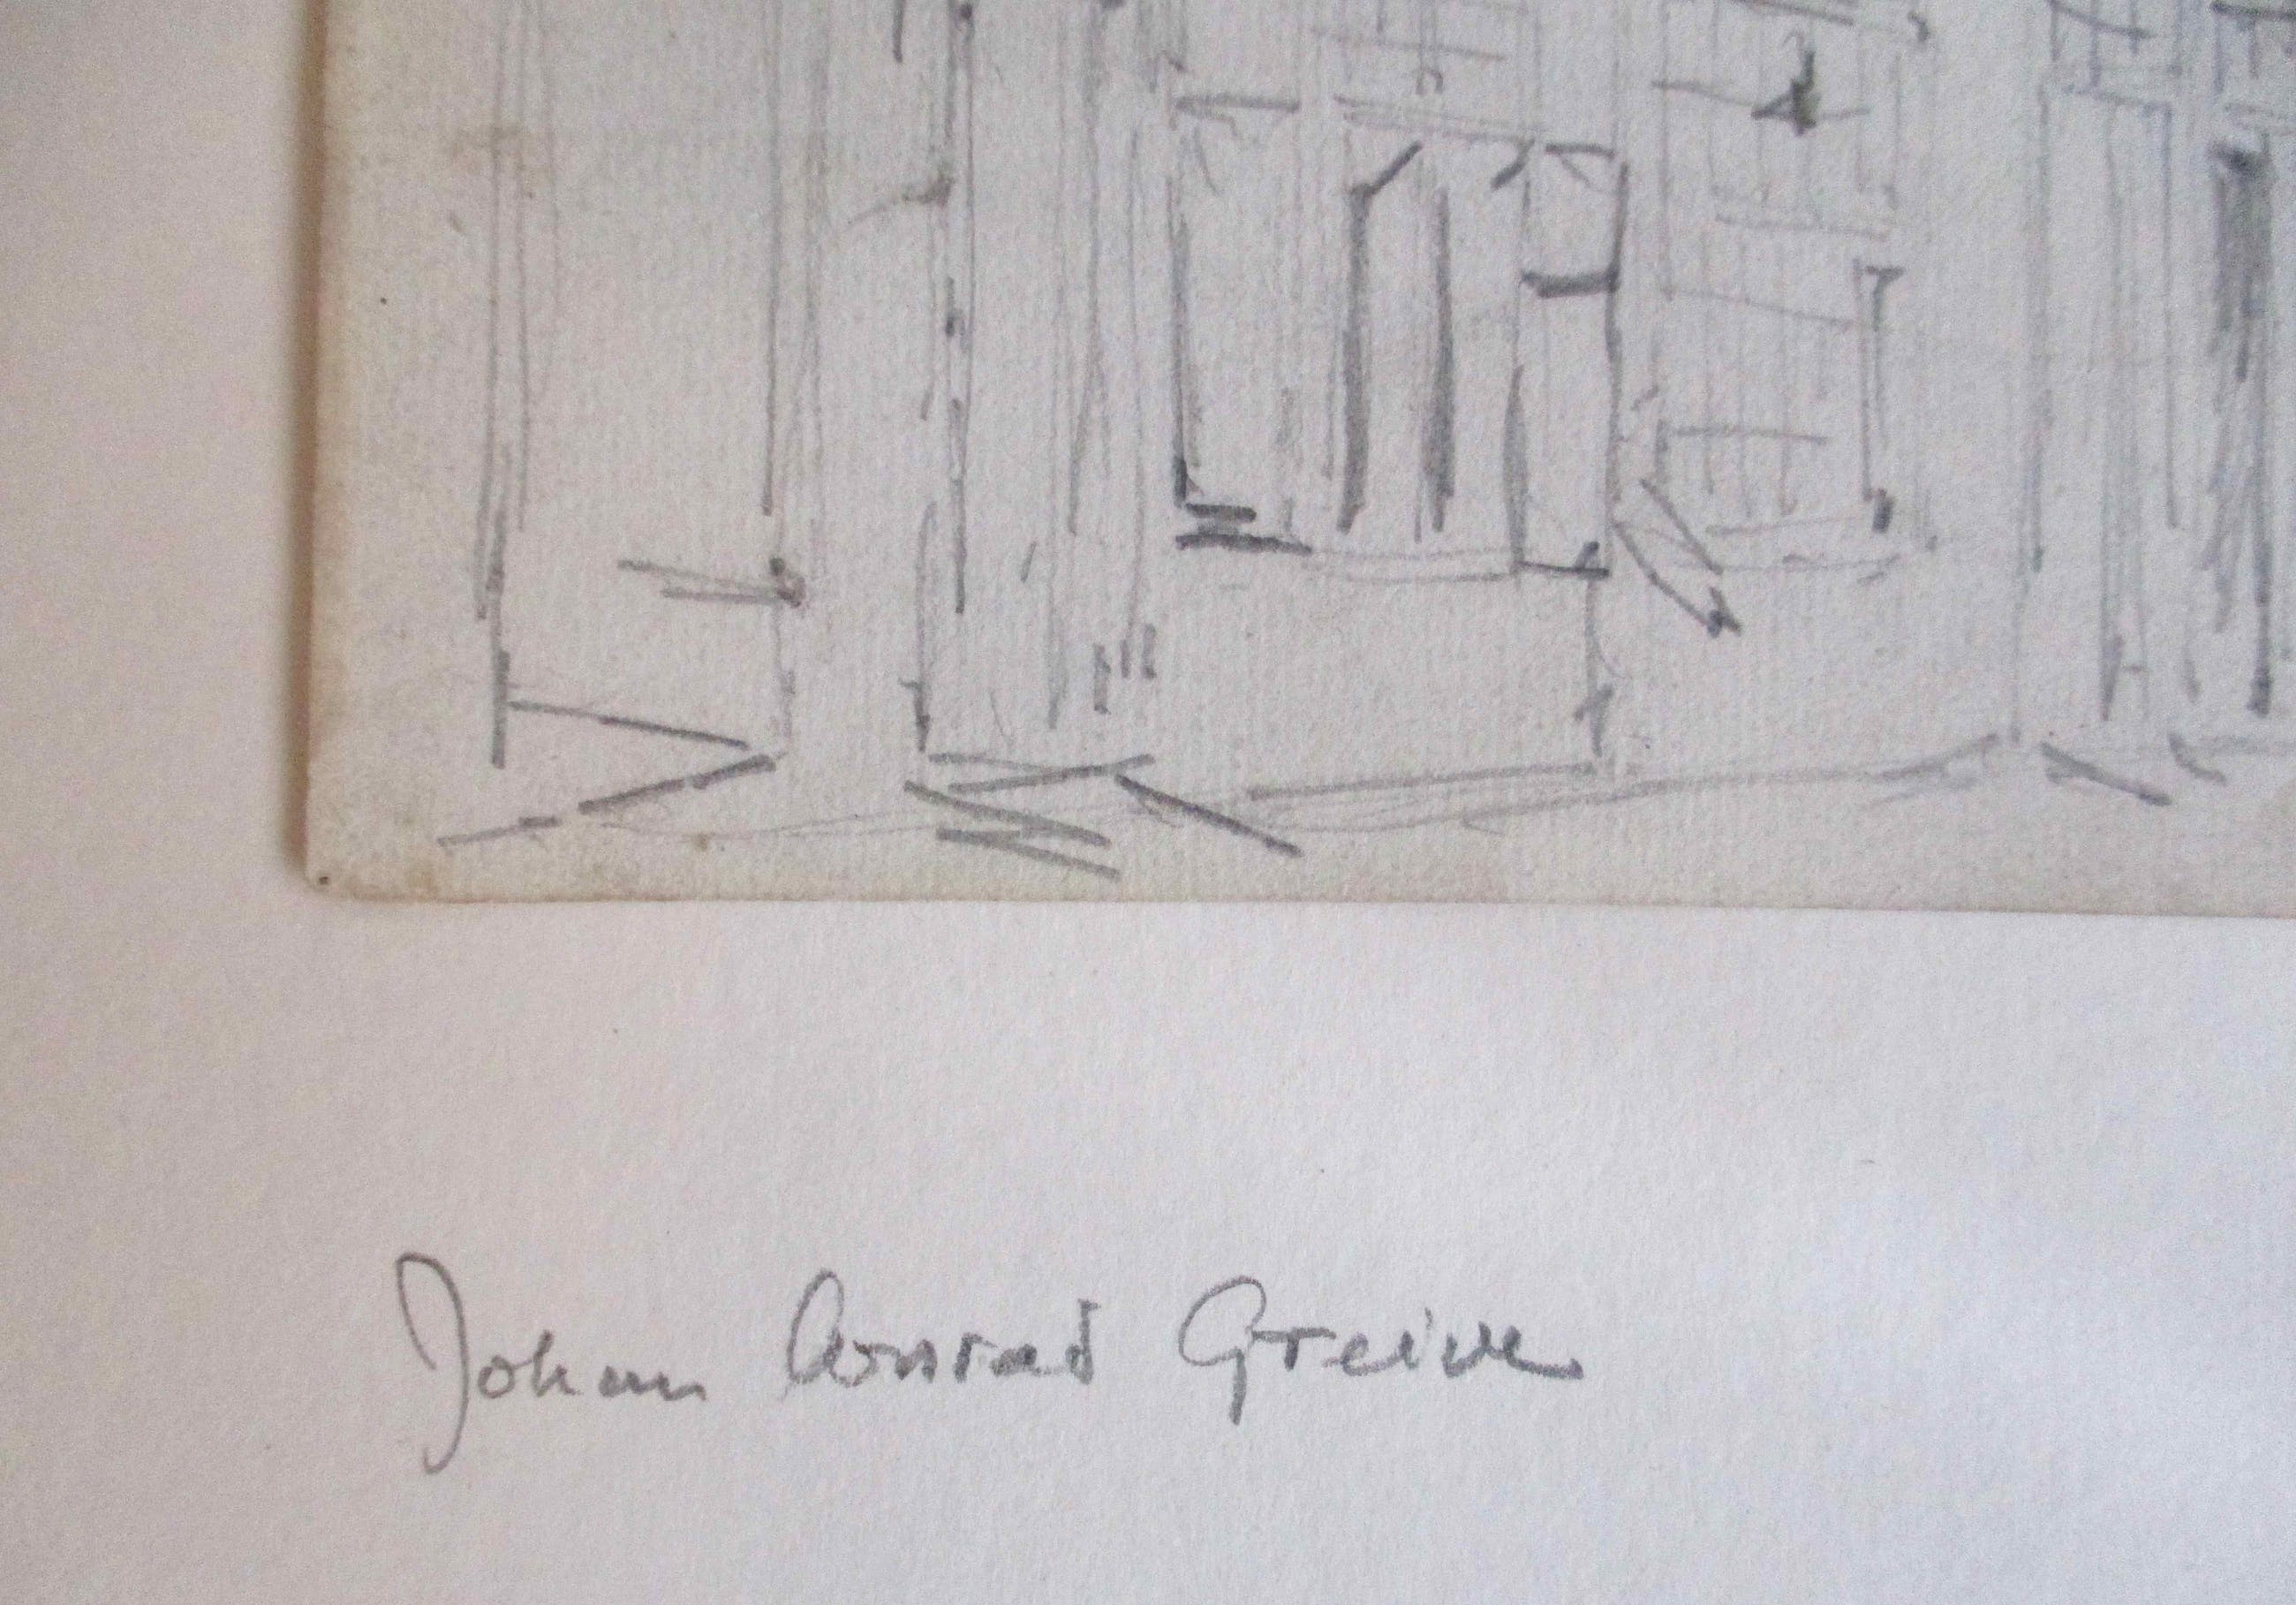 Johan Conrad Greive